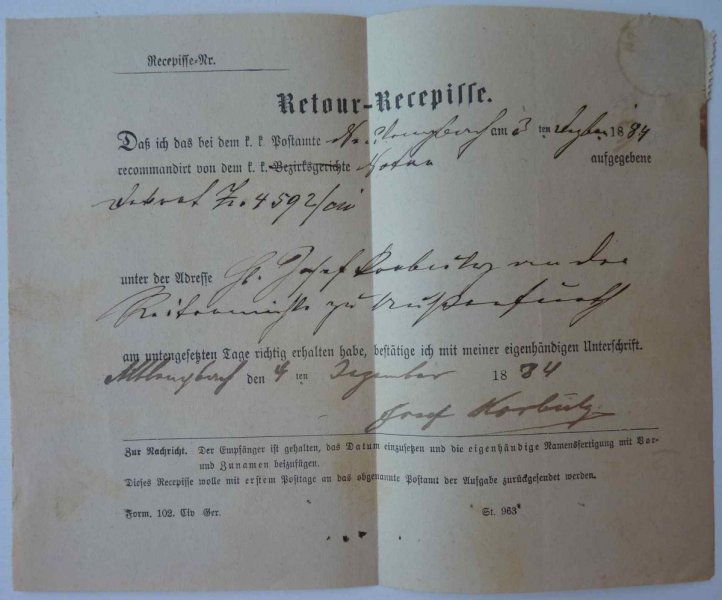 Recepisse-Nr.
Retour-Recepisse.
Daß ich das bei dem k. k. Postamte Neulengbach am 3 ten 1884
recommandirt von dem k. k. Bezirksgerichte Notar aufgegebene
Dekret Z. 4592/
unter der Adresse H. Josef Korbutz an der
zu
am untengesetzten Tage richtig erhalten habe, bestätige ich mit meiner eigenhändigen Unterschrift.
Altlengbach den 4 ten Dezember 1884
Josef Korbutz
Zur Nachricht. Der Empfänger ist gehalten, das Datum einzusetzen und die eigenhändige Namensfertigung mit Vor-
und Zunamen beizufügen.
Dieses Recepisse wolle mit erstem Posttage an das obgenannte Postamt der Aufgabe zurückgesendet werden.
Form. 102. Civ Ger. St. 963